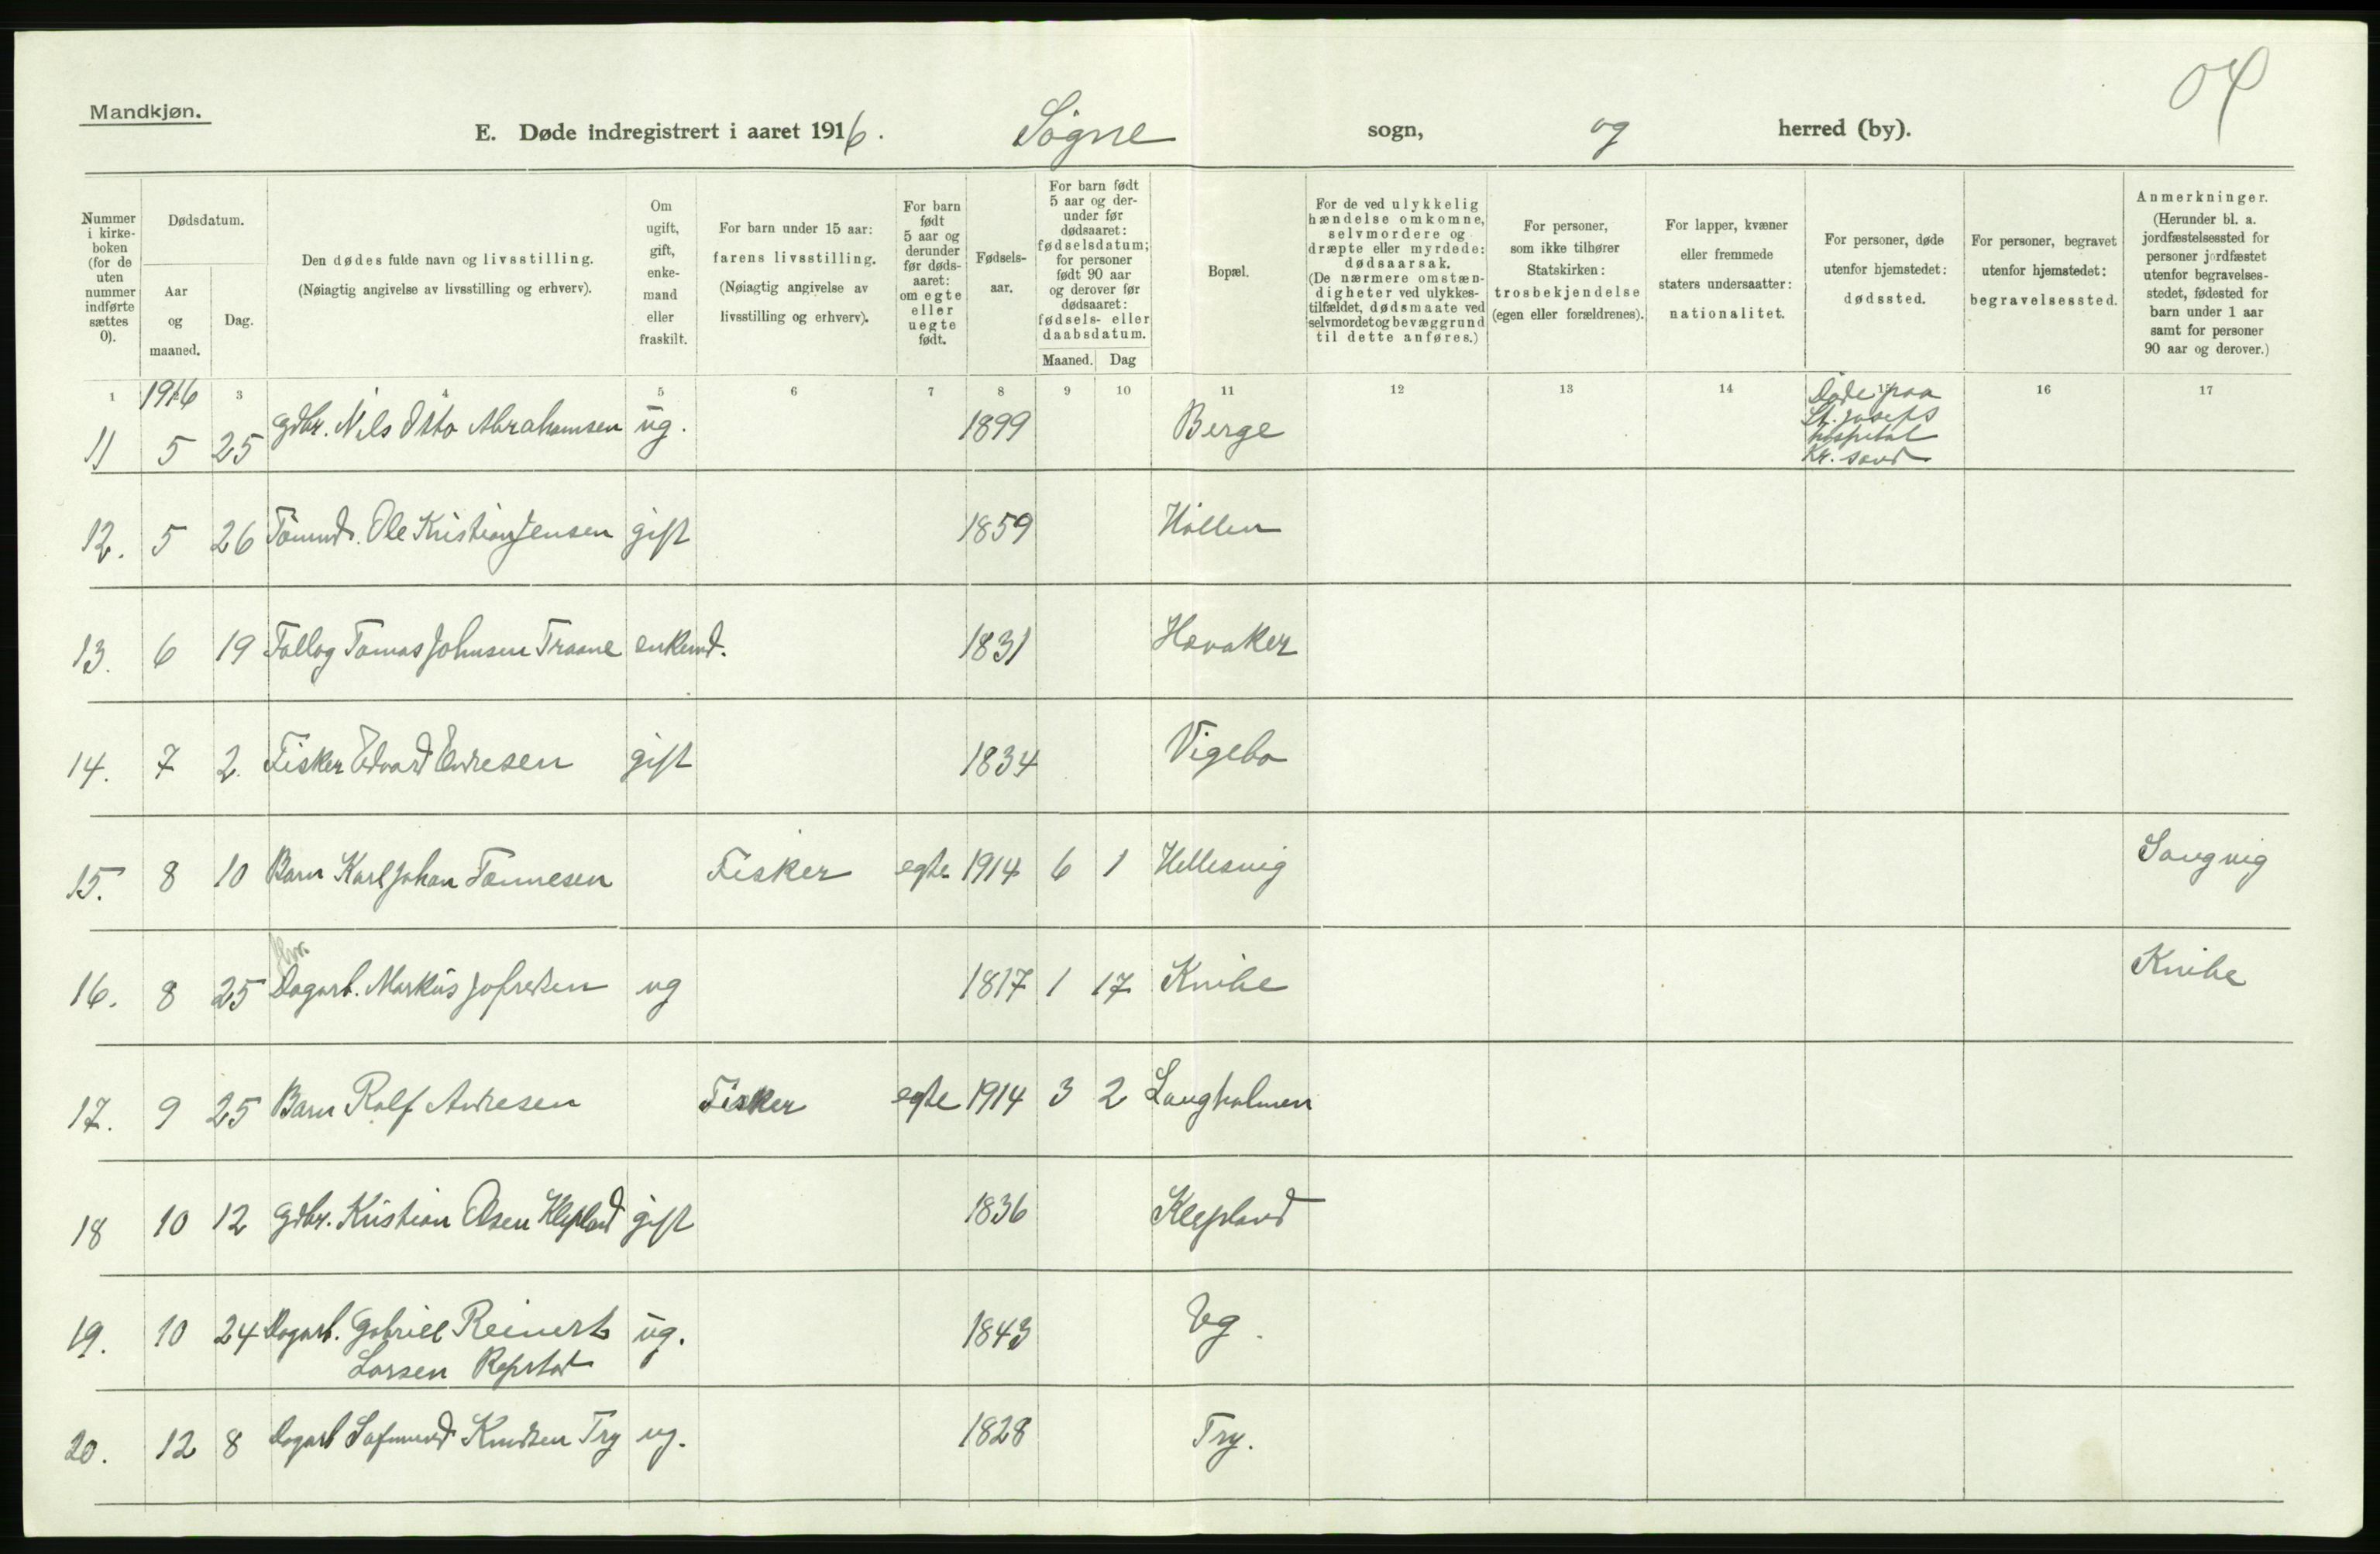 Mandkjøn.
E. Døde indregistrert i aaret 1916. Søgne sogn, og herred (by).
Nummer i kirke-boken (for de uten nummer indførte sættes 0).
Dødsdatum.
Aar og maaned.
Dag.
Den dødes fulde navn og livsstilling.
(Nøiagtig angivelse av livsstilling og erhverv).
Om ugift, gift, enke-mand eller fraskilt.
For barn under 15 aar: farens livsstilling.
(Nøiagtig angivelse av livsstilling og erhverv).
For barn født 5 aar og derunder før døds-aaret: om egte eller uegte født.
Fødsels-aar.
For barn født 5 aar og der-under før dødsaaret: fødselsdatum; for personer født 90 aar og derover før dødsaaret: fødsels- eller daabsdatum.
Maaned. Dag
Bopæl.
For de ved ulykkelig hændelse omkomne, selvmordere og dræpte eller myrdede: dødsaarsak.
(De nærmere omstæn-digheter ved ulykkes-tilfældet, dødsmaate ved selvmordet og bevæggrund til dette anføres.)
For personer, som ikke tilhører Statskirken: trosbekjendelse (egen eller forældrenes).
For lapper, kvæner eller fremmede staters undersaatter: nationalitet.
For personer, døde utenfor hjemstedet: dødssted.
For personer, begravet utenfor hjemstedet: begravelsessted.
Anmerkninger.
(Herunder bl. a. jordfæstelsessted for personer jordfæstet utenfor begravelses-stedet, fødested for barn under 1 aar samt for personer 90 aar og derover.)
1 1916 3 4 5 6 7 8 9 10 11 12 13 14 15 16 17
11 5 25 Gdbr. Nils Otto Abrahamsen ug. 1899 Berge Døde paa St. Josefs hospital Kr. sand
12. 5 26 Tømmd. Ole Kristian Jensen gift 1859 Høllen
13. 6 19 Follog Tomas Johnsen Traane enkemd. 1831 Havaker
14. 7 2. Fisker Edvard Endresen gift 1834 Vigebo
15. 8 10 Barn Karl Johan Tønnesen Fisker egte 1914 6 1 Hellesvig Langvig
16. 8 25 Dagarb. Markus Jofredsen ug 1817 1 17 Knibe Knibe
17. 9 25 Barn Rolf Andresen Fisker egte 1914 3 2 Langholmen
18 10 12 Gdbr. Kristian Olsen Klepland gift 1836 Klepland
19. 10 24 Dagarb. Gabriel Reinerts ug. 1843 Eg.
Larsen Repstad
20. 12 8 Dagarb Knudsen Try ug. 1828 Try.